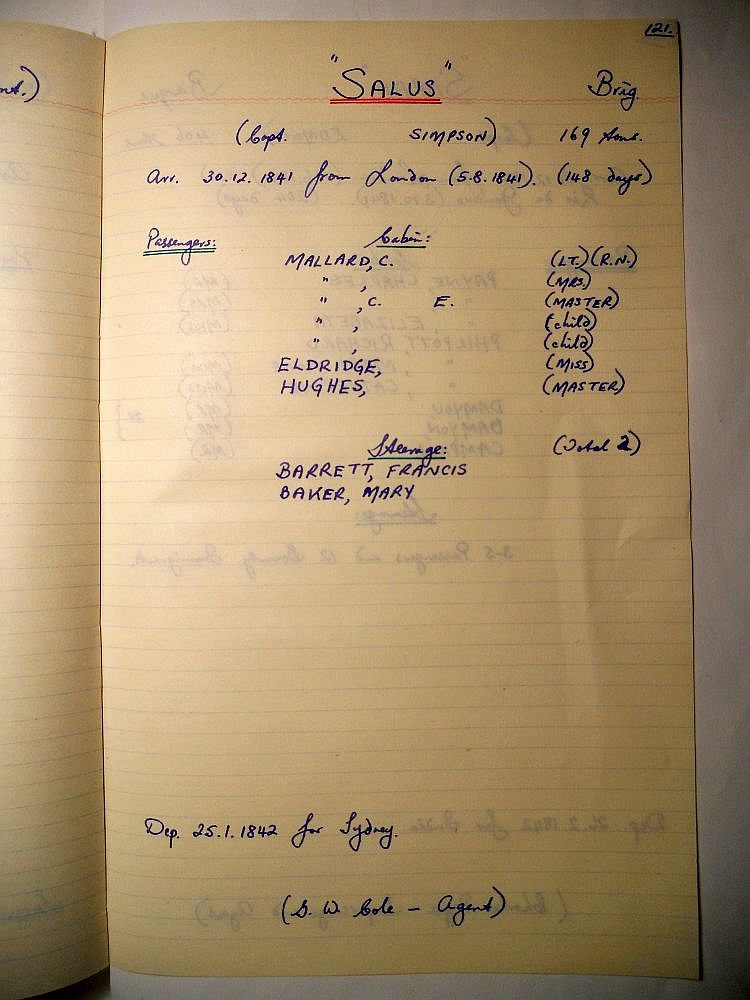 121.
nt.)
"SALUS" Brig.
(Capt. SIMPSON) 169 tons.
Arr. 30.12.1841 from London (5.8.1841). (148 days)
Passengers: Cabin:
MALLARD, C. (LT.) (R.N.)
" , (MRS.)
" , C. E. (MASTER)
" , (child)
" , (child)
ELDRIDGE, (MISS)
HUGHES, (MASTER)
Steerage: (Total 2)
BARRETT, FRANCIS
BAKER, MARY
Dep. 25.1.1842 for Sydney.
(G. W. Cole - Agent)